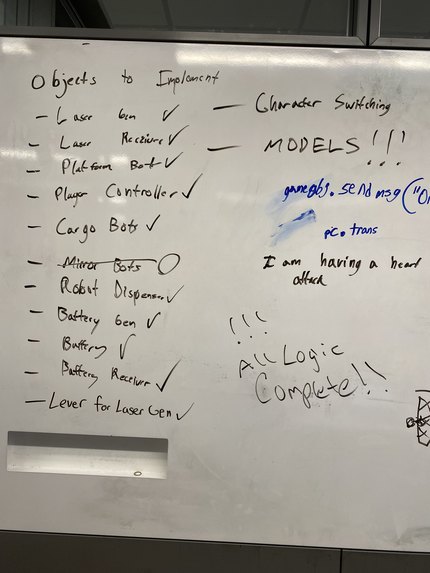 Objects to Implement
- Laser Gen ✓
- Laser Receiver ✓
- Platform Bots ✓
- Player Controller ✓
- Cargo Bots ✓
- Mirror Bots O
- Robot Dispenser ✓
- Battery Gen ✓
- Battery ✓
- Battery Receiver ✓
- Lever for Laser Gen ✓
- Character Switching
- MODELS!!!
gameobj.sendmsg("O
pc.trans
I am having a heart
attack
!!!
All Logic
Complete!!